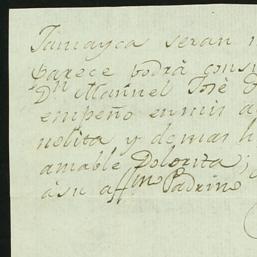 Jamayca seran
parece podrà consu
Dn Manuel José
empeño en mis a
nelita y demas h
amable Dolorita;
à su affmo Padrino